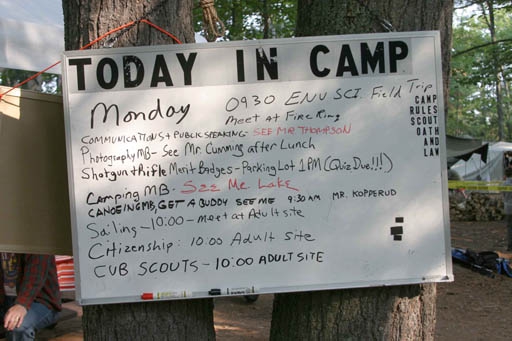 TODAY IN CAMP
Monday
0930 ENV SCI. Field Trip
Meet at Fire Ring
CAMP
RULES
SCOUT
OATH
AND
LAW
COMMUNICATIONS + PUBLIC SPEAKING- SEE MR THOMPSON
Photography MB- See Mr Cumming after Lunch
Shotgun + Rifle Merit Badges - Parking Lot 1 PM (Quiz Due!!!)
Camping MB- See Mr. Lake
CANOEING MB, GET A BUDDY SEE ME 9:30 AM MR. KOPPERUD
Sailing - 10:00 - Meet at Adult site
Citizenship: 10:00 Adult Site
CUB SCOUTS - 10:00 ADULT SITE